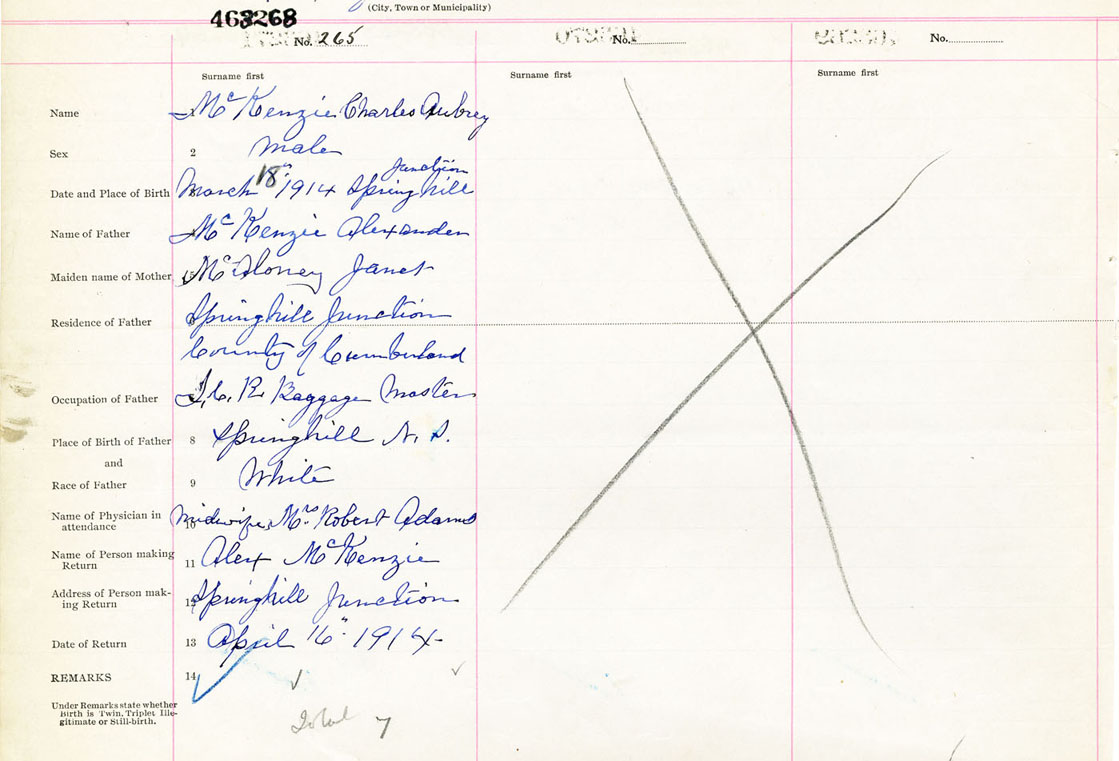 (City, Town or Municipality)
463268
No. 265 No. No.
Surname first Surname first Surname first
Name 1 McKenzie Charles Aubrey
Sex 2 Male
Junction
Date and Place of Birth 3 March 18" 1914 Springhill
Name of Father 4 McKenzie Alexander
Maiden name of Mother 5 McAloney Janet
Residence of Father 6 Springhill Junction
County of Cumberland
Occupation of Father I. C. R. Baggage Master
Place of Birth of Father 8 Springhill N. S.
and
Race of Father 9 White
Name of Physician in
attendance 10 Midwife, Mrs. Robert Adams
Name of Person making
Return 11 Alex McKenzie
Address of Person mak-
ing Return 12 Springhill Junction
Date of Return 13 April 16" 1914
REMARKS 14
Under Remarks state whether
Birth is Twin, Triplet Ille-
gitimate or Still-birth.
Total 7